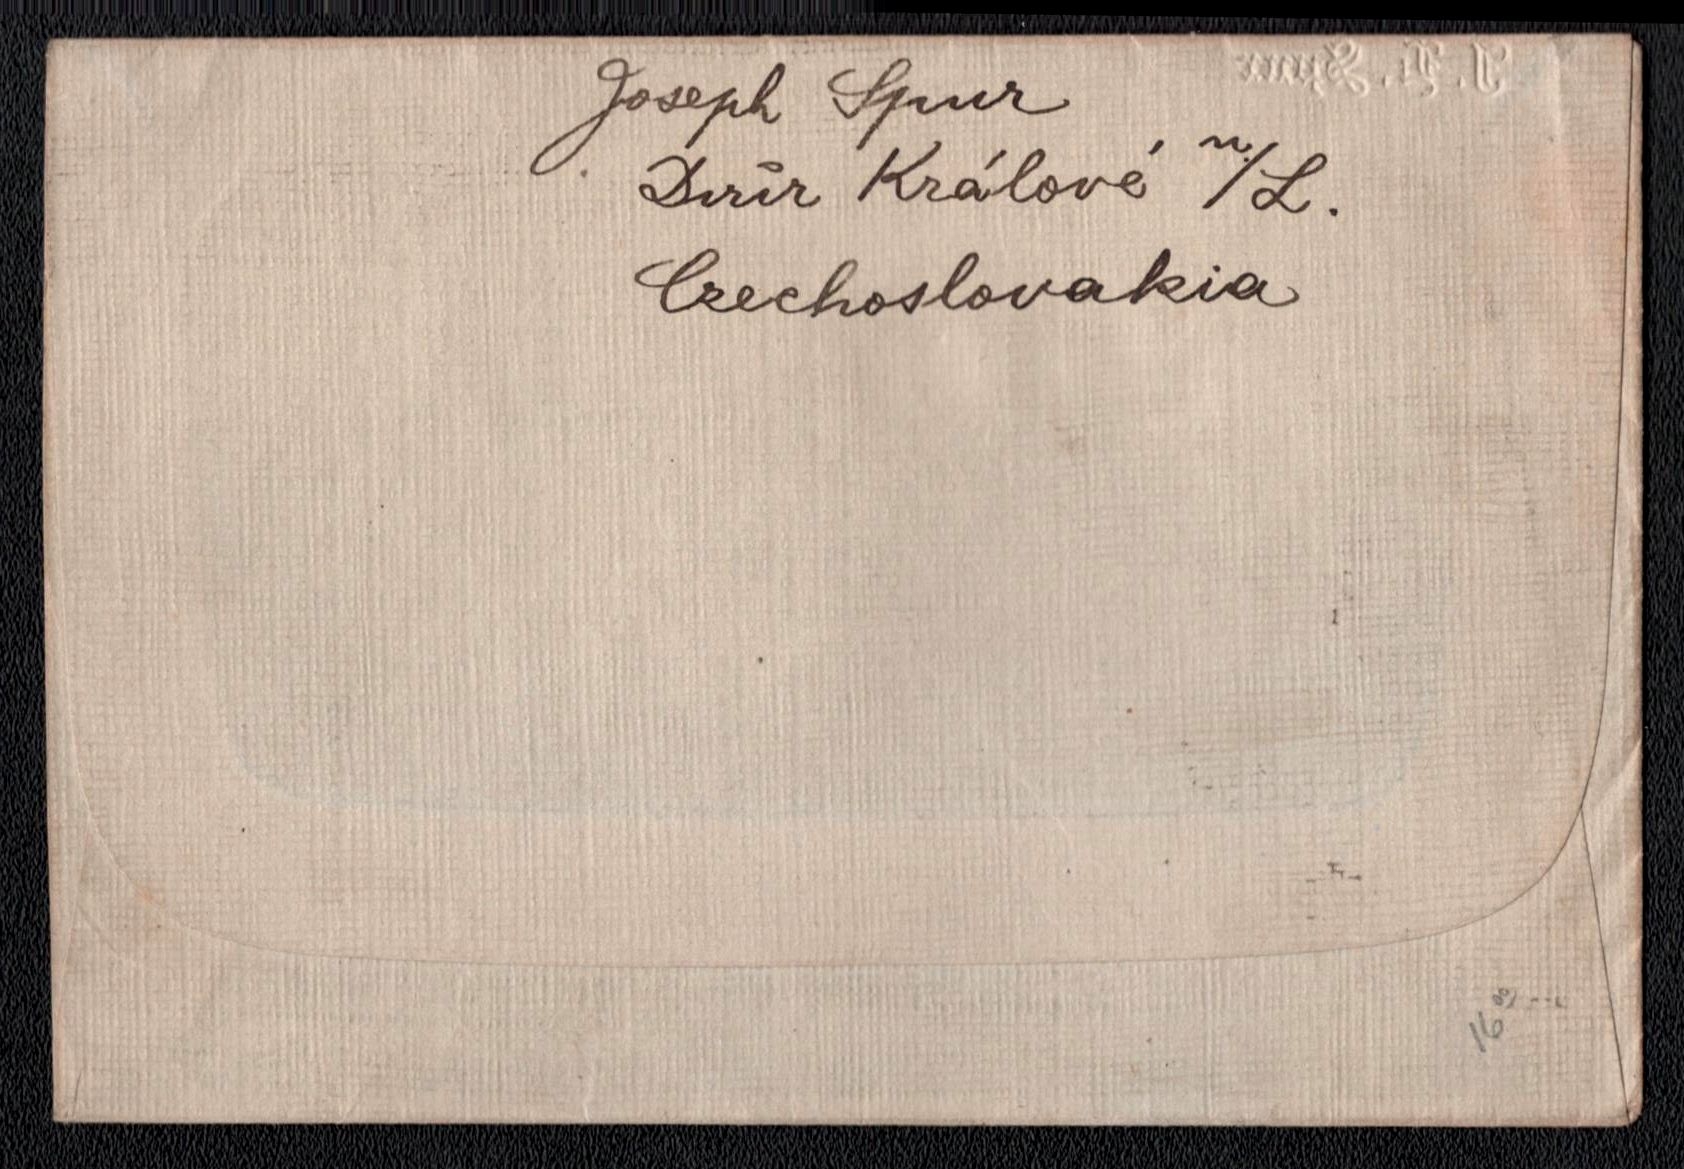 Joseph Spur
Dvůr Králové n./L.
Czechoslovakia
16⁰⁰